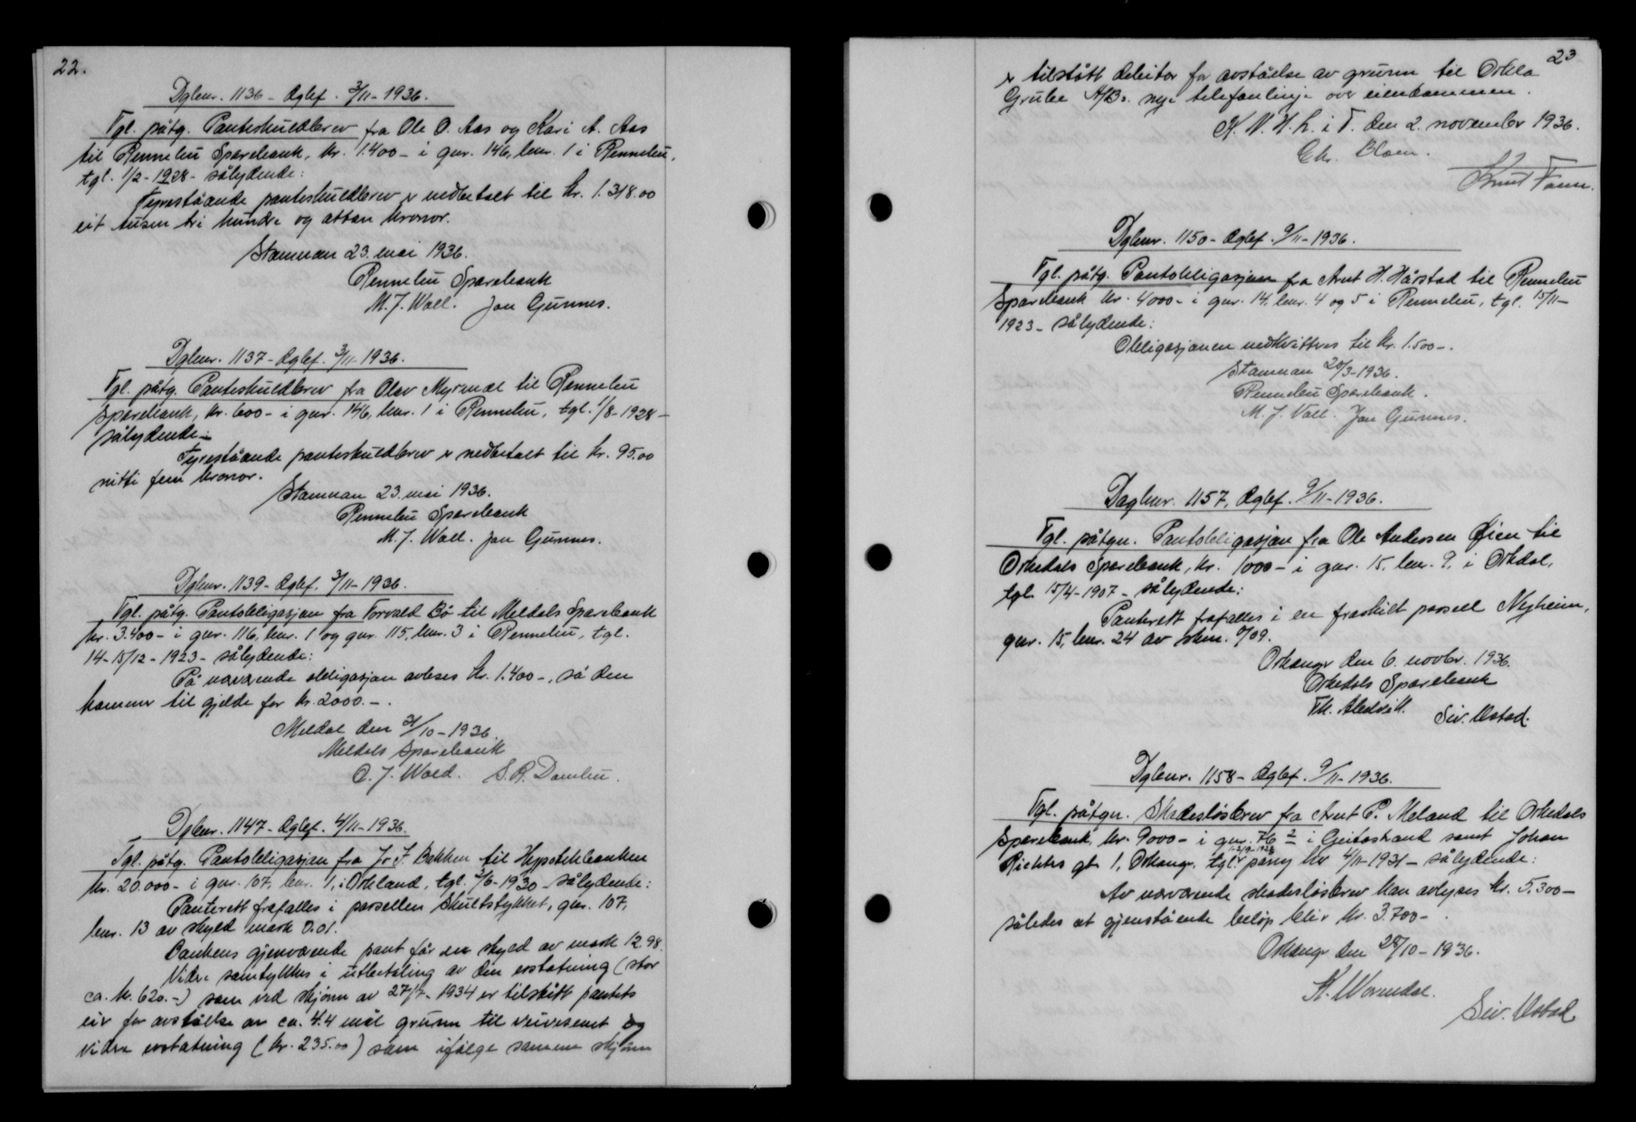 22.
Dgbnr. 1136 - dgbf. 3/11-1936.
Tgl. påtg. Panteskuldbrev fra Ole O. Aas og Kari A. Aas
til Rennebu Sparebank, kr. 1.400- i gnr. 146, bnr. 1 i Rennebu,
tgl. 1/2-1928- sålydende:
Fyrestående panteskuldbrev er nedbetalt til kr. 1.318.00
eit tusen tri hundre og attan kronor.
Stamnan 23. mai 1936.
Rennebu Sparebank
M. J. Voll. Jon Gunnes.
Dgbnr. 1137 - dgbf. 3/11-1936.
Tgl. påtg. Panteskuldbrev fra Olav Myrmæl til Rennebu
Sparebank, kr. 600- i gnr. 146, bnr. 1 i Rennebu, tgl. 1/8-1928-
sålydende:-
Fyrestående panteskuldbrev er nedbetalt til kr. 95.00
nitti fem kronor.
Stamnan 23. mai 1936.
Rennebu Sparebank
M. J. Voll. Jon Gunnes.
Dgbnr. 1139 - dgbf. 3/11-1936.
Tgl. påtg. Pantobligasjon fra Torvald Bö til Meldals Sparebank
kr. 3.400- i gnr. 116, bnr. 1 og gnr. 115, bnr. 3 i Rennebu, tgl.
14-15/12-1923- sålydende:
På nærværende obligasjon avleses kr. 1.400-, så den
kommer til gjelde for kr. 2000.-.
Meldal den 21/10-1936.
Meldals Sparebank
O. J. Wold. S. R. Damlu.
Dgbnr. 1147 - dgbf. 4/11-1936.
Tgl. påtg. Pantobligasjon fra Jr. F. Bakken til Hypotekbanken
kr. 20.000- i gnr. 107, bnr. 1, i Orkland, tgl. 2/6-1930- sålydende:
Panterett frafalles i parsellen Skultstykket, gnr. 107,
bnr. 13 av skyld mark 0.01.
Bankens gjenværende pant får en skyld av mark 12.98.
Videre samtykkes i utbetaling av den erstatning (stor
ca. kr. 620.-) som ved skjønn av 27/7-1934 er tilstått pantets
eier for avståelse av ca. 4.4 mål grunn til veivesenet og
videre erstatning (kr. 235.00) som ifølge samme skjønn
23
er tilstått debitor for avståelse av grunn til Orkla
Grube A/Bs. nye telefonlinje over eiendommen.
K. N. H. b. i T. den 2. november 1936.
Chr. Bloen.
Knut Fonn.
Dgbnr. 1150 - dgbf. 9/11-1936.
Tgl. påtg. Pantobligasjon fra Arnt H. Hårstad til Rennebu
Sparebank kr. 4000- i gnr. 14, bnr. 4 og 5 i Rennebu, tgl. 15/11-
1923- sålydende:
Obligasjonen nedkvitteres til kr. 1.500-.
Stamnan 20/3-1936.
Rennebu Sparebank.
M. J. Voll. Jon Gunnes.
Dagbnr. 1157, dgbf. 9/11-1936.
Tgl. påtgn. Pantobligasjon fra Ole Andersen Øien til
Orkedals Sparebank, kr. 1000- i gnr. 15, bnr. 9, i Orkdal,
tgl. 15/4-1907- sålydende:
Panterett frafalles i en fraskilt parsell Nyheim,
gnr. 15, bnr. 24 av skm. 0/09.
Orkanger den 6. novbr. 1936.
Orkedals Sparebank
Siv. Ustad.
Dgbnr. 1158 - dgbf. 9/11-1936.
Tgl. påtgn. Skadesløsbrev fra Arnt P. Meland til Orkedals
Sparebank, kr. 9000- i gnr. 76/2 i Geitastrand samt Johan
Richters gt. 1, Orkanger, tgl. påny kr 4/11-1931- sålydende:
Av nærværende skadesløsbrev kan avlyses kr. 5.300-
således at gjenstående beløp blir kr. 3.700-.
Orkanger den 28/10-1936.
Siv. Ustad